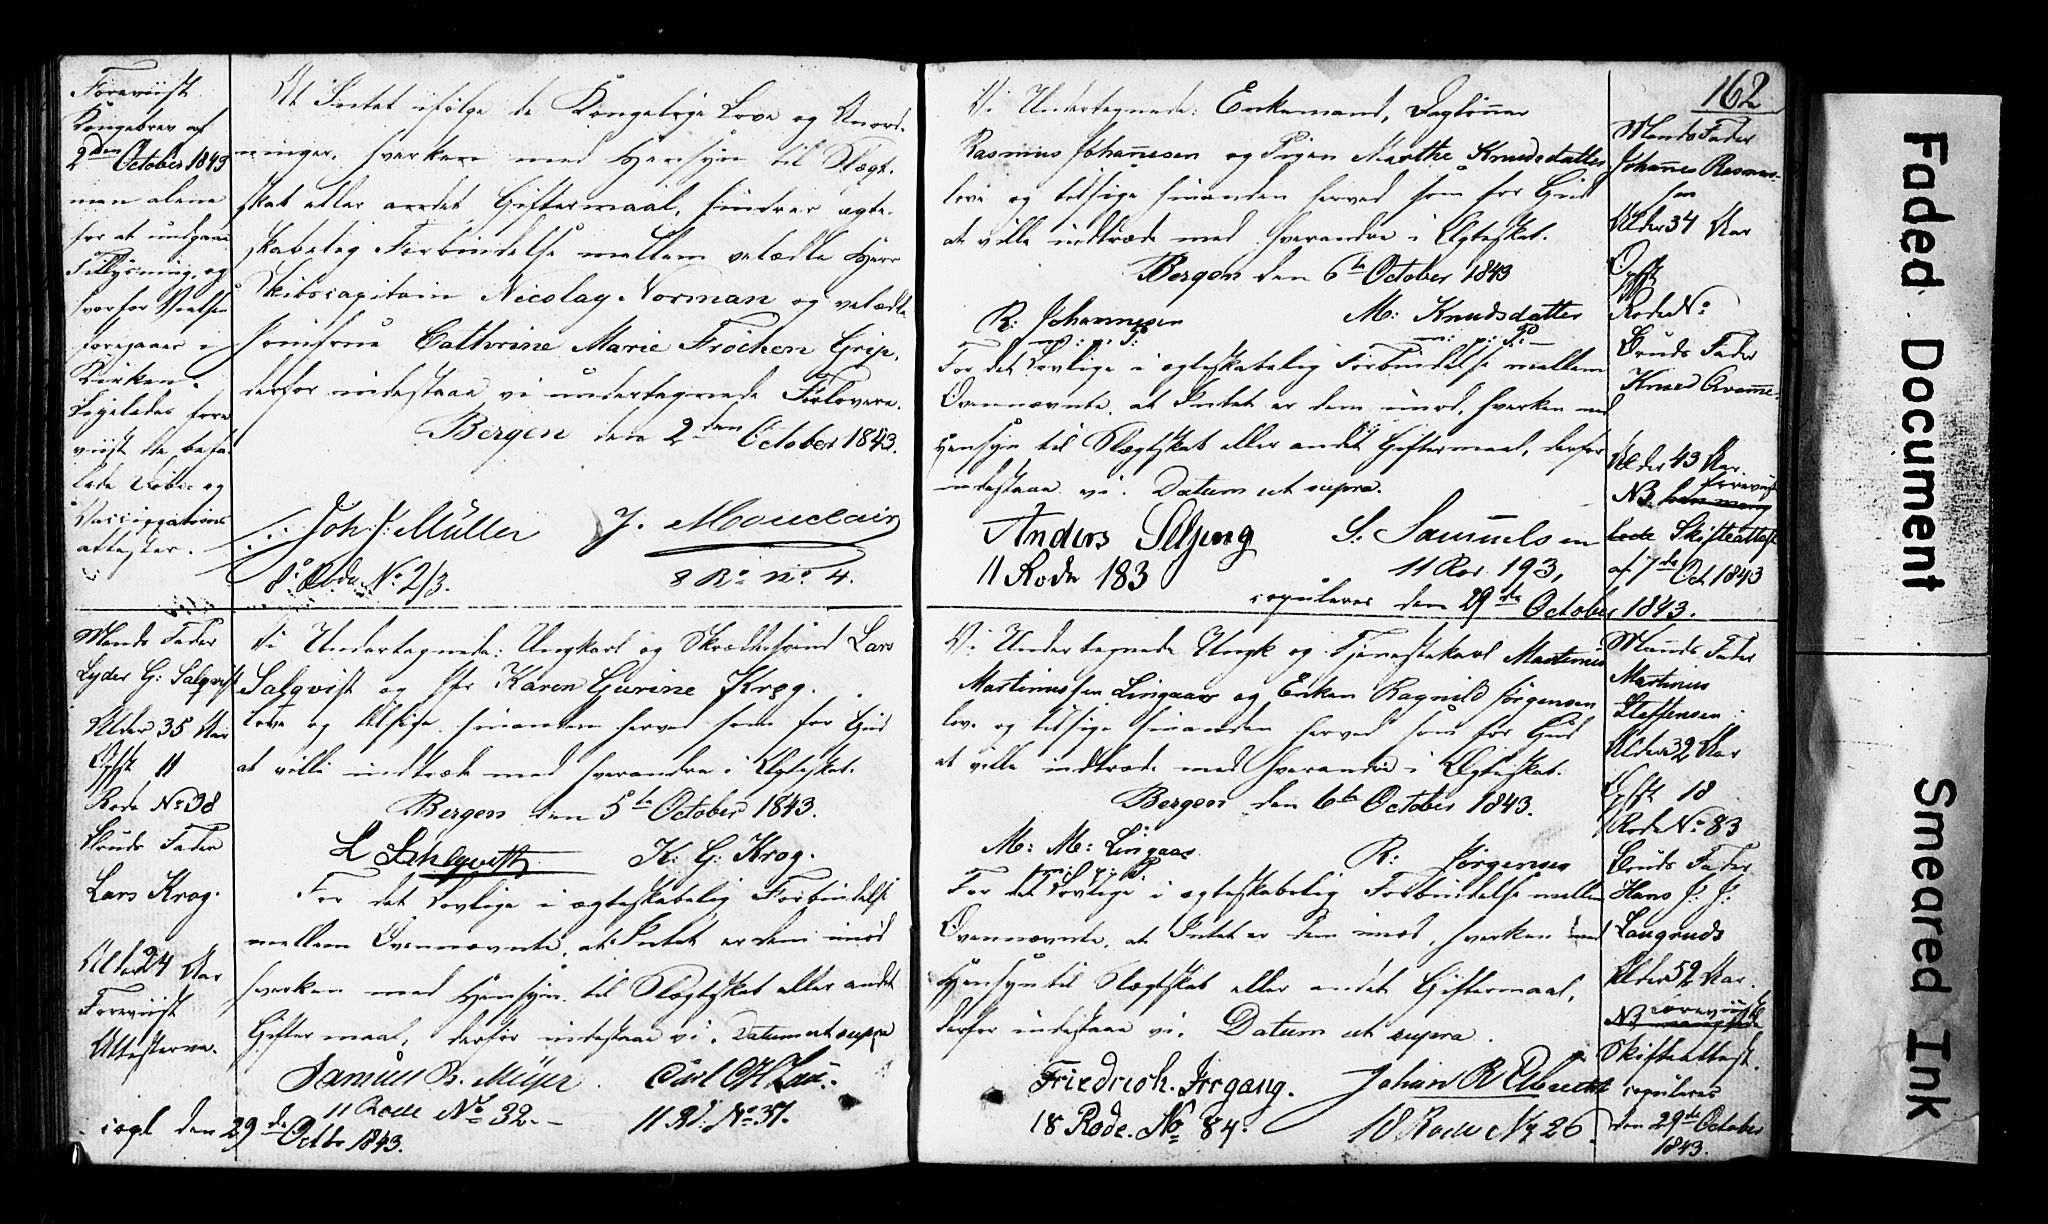 Foreviist
Kongebrev af
2den October 1843
men alene
for at undgaae
Tillysning, og
hvorfor Vielsen
foregaaer i
Kirken.
Ligeledes fore
viist de befa-
lede Døbe- og
Vaccinations
attester.
At Intet ifølge de Kongelige Love og Anord-
ninger, hverken med Hensyn til Slægt-
skab eller andet Giftermaal, hindrer ægte-
skabelig Forbindelse mellem velædle Herr
Skibscapitain Nicolay Norman og velædle
Jomfrue Cathrine Marie Frøchen Grip,
derfor indestaae vi undertegnede Forlovere.
Bergen den 2den October 1843.
Joh. J. Müller J. Mouclair
8de Rode No 2/3. 8 Ro no 4.
Mands Fader
Lyder G: Salqvist
Alder 35 Aar
Opfst 11
Rode No 38
Bruds Fader
Lars Krog.
Alder 24 Aar
Foreviist
Attesterne.
Vi Undertegnede: Ungkarl og Skræddersvend Lars
Salqvist og Jfr Karen Gurine Krog.
love og tilsige hinanden herved som for Gud
at ville indtræde med hverandre i Ægteskab.
Bergen den 5te October 1843.
L Sahlqvist K: G: Krog.
For det Lovlige i ægteskabelig Forbindelse
mellem Ovennævnte, at Intet er dem imod
hverken med Hensyn til Slægtskab eller andet
Giftermaal, derfor indestaae vi. Datum ut supra
Samuel B. Meyer Carl O
11 Rode No 32. 11 Rd. No 37.
copl den 29de Octbr 1843.
162
Vi Undertegnede: Enkemand, Daglønner
Rasmus Johannesen og Pigen Marthe Knudsdatter
love og tilsige hinanden herved som for Gud
at ville indtræde med hverandre i Ægteskab.
Bergen den 6te October 1843
R: Johannesen M: Knudsdatter
m: p: P: m: p: P:
For det Lovlige i ægteskabelig Forbindelse mellem
Ovennævnte, at Intet er dem imod, hverken med
Hensyn til Slægtskab eller andet Giftermaal, derfor
indestaae vi. Datum ut supra.
Anders Seljeng S. Samuelsen
11 Rode 183 11 Rod. 193,
copuleres den 29de October 1843.
Mands Fader
Johannes Rasmus-
sen
Alder 34 Aar
Opfst
Rode No
Bruds Fader
Knud
Alder 43 Aar.
foreviist
NB
Skifteattest
af 7de Oct. 1843
Vi Undertegnede Ungk og Tjenestekarl Martinus
Martinussen Lingaas og Enken Ragnild Jørgensen
love og tilsige hinanden herved som for Gud
at ville indtræde med hverandre i Ægteskab.
Bergen den 6te October 1843.
M: M: Lingaas R: Jørgensen
m: p: P:
For det Lovlige i ægteskabelig Forbindelse mellem
Ovennævnte, at Intet er dem imod, hverken med
Hensyn til Slægtskab eller andet Giftermaal,
derfor indestaae vi. Datum ut supra.
Friedrich. Irrgang. Johan R Albrecht
18 Rode. No 84. 18 Rode No 26.
Mands Fader
Martinus
Steffensen
Alder 32 Aar
Opfst 18
Rode No 83
Bruds Fader
Hans J: J:
Laugruds
Alder 52 Aar.
foreviist
NB
Skifteattest.
copuleres
den 29de October
1843.
Faded Document
Smeared Ink